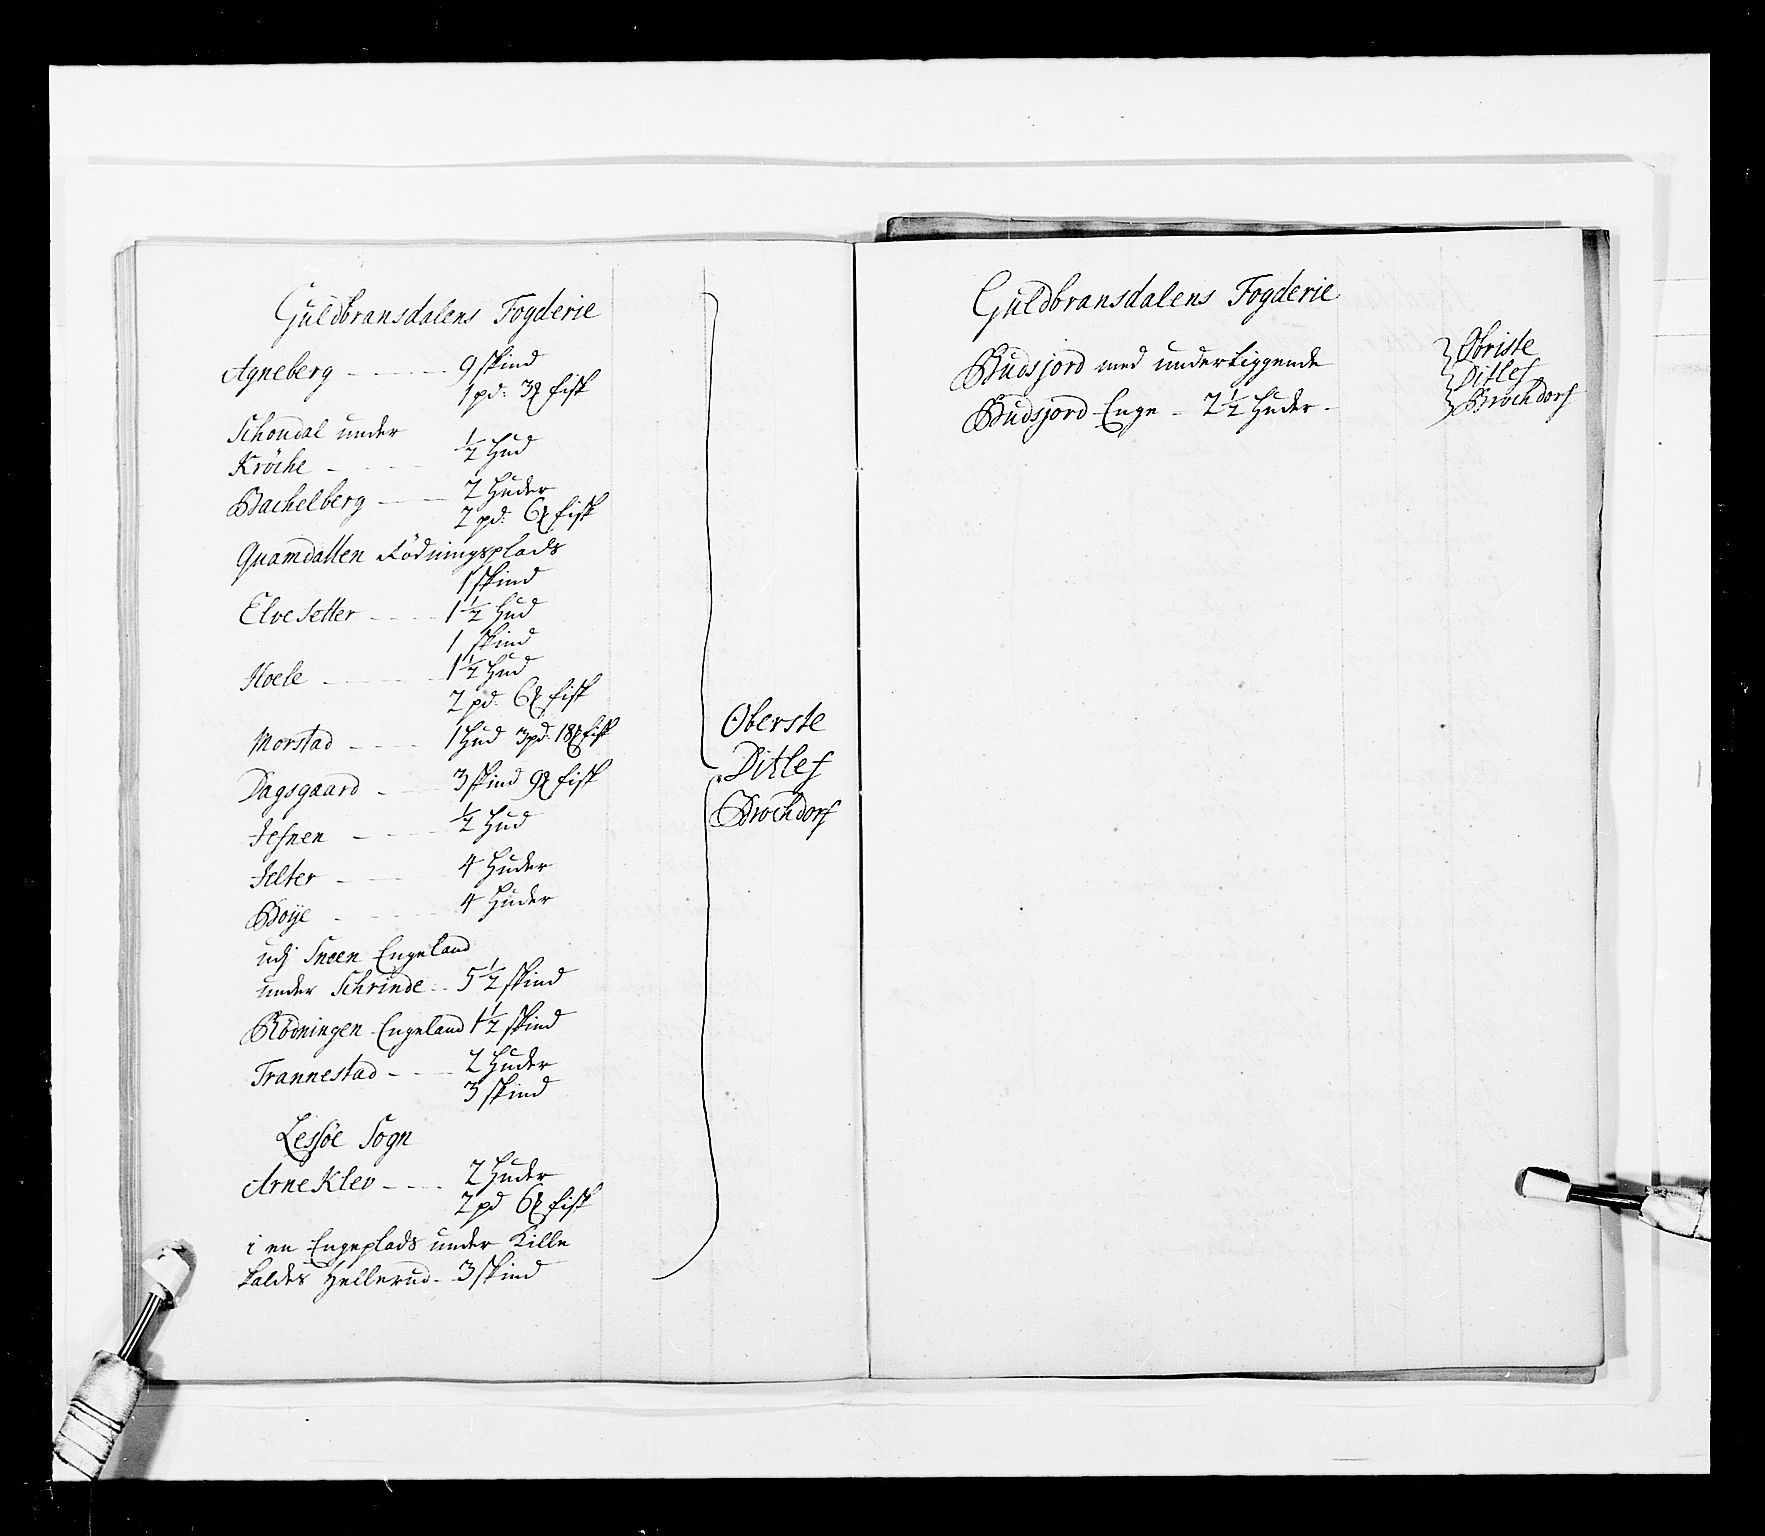 Guldbransdalens Fogderie
Agneberg - - - - - 9 skind
1 pd: 3 ℔ fisk
Schondal under
Kröche - - - - ½ Hud
Bachelberg - - - 2 Huder
2 pd: 6 ℔ fisk
Quamdallen Rödningsplads
1 skind
Elve Setter - - - - 1½ Hud
1 skind
Hoele - - - - - 1½ Hud
2 pd. 6 ℔ fisk
Morstad - - - - 1 Hud 3 pd. 18 ℔ fisk
Dagsgaard - - - 3 skind 9 ℔ fisk
Jesnen - - - - ½ Hud
Jelter - - - 4 Huder
Boije - - - - 4 Huder
udj Snoen Engeland
under Schrinde - - 5½ skind
Rödningen Engeland 1½ skind
Trannestad - - - 2 Huder
3 skind
Lessöe Sogn
Arne Klev - - - - 2 Huder
2 pd 6 ℔ fisk
i en Engeplads under Kille
kaldes Hellerud - 3 skind
Oberste
Ditlef
Brochdorf
Guldbransdalens Fogderie
Budsjord med underliggende
Budsjord Enge - 2½ Huder -
Obriste
Ditlef
Brochdorf